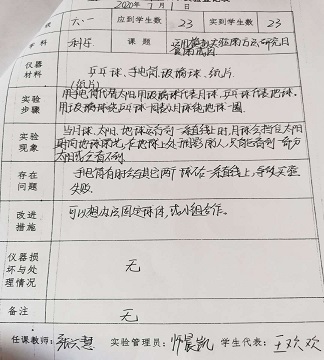 2020年7月1日
六一 应到学生数 23 实到学生数 23
学科 科学 课题 运用模拟实验的方法研究日食的成因
仪器材料 乒乓球、手电筒、玻璃球、纸片
(纸片)
实验步骤 用手电筒代替太阳,用玻璃球代表月球,乒乓球代表地球。
用玻璃球绕乒乓球一周表示月球绕地球一圈
实验现象 当月球、太阳、地球运行到一条直线上时,月球会挡住太阳
射向地球的光,在地球上
太阳或全看不到。
存在问题 手电筒有时会与其它两个球不在一条直线上,导致实验
失败。
改进措施 可以想办法固定球体,或小组合作。
仪器损坏与处理情况 无
备注 无
任课教师: 实验管理员: 学生代表:王欢欢